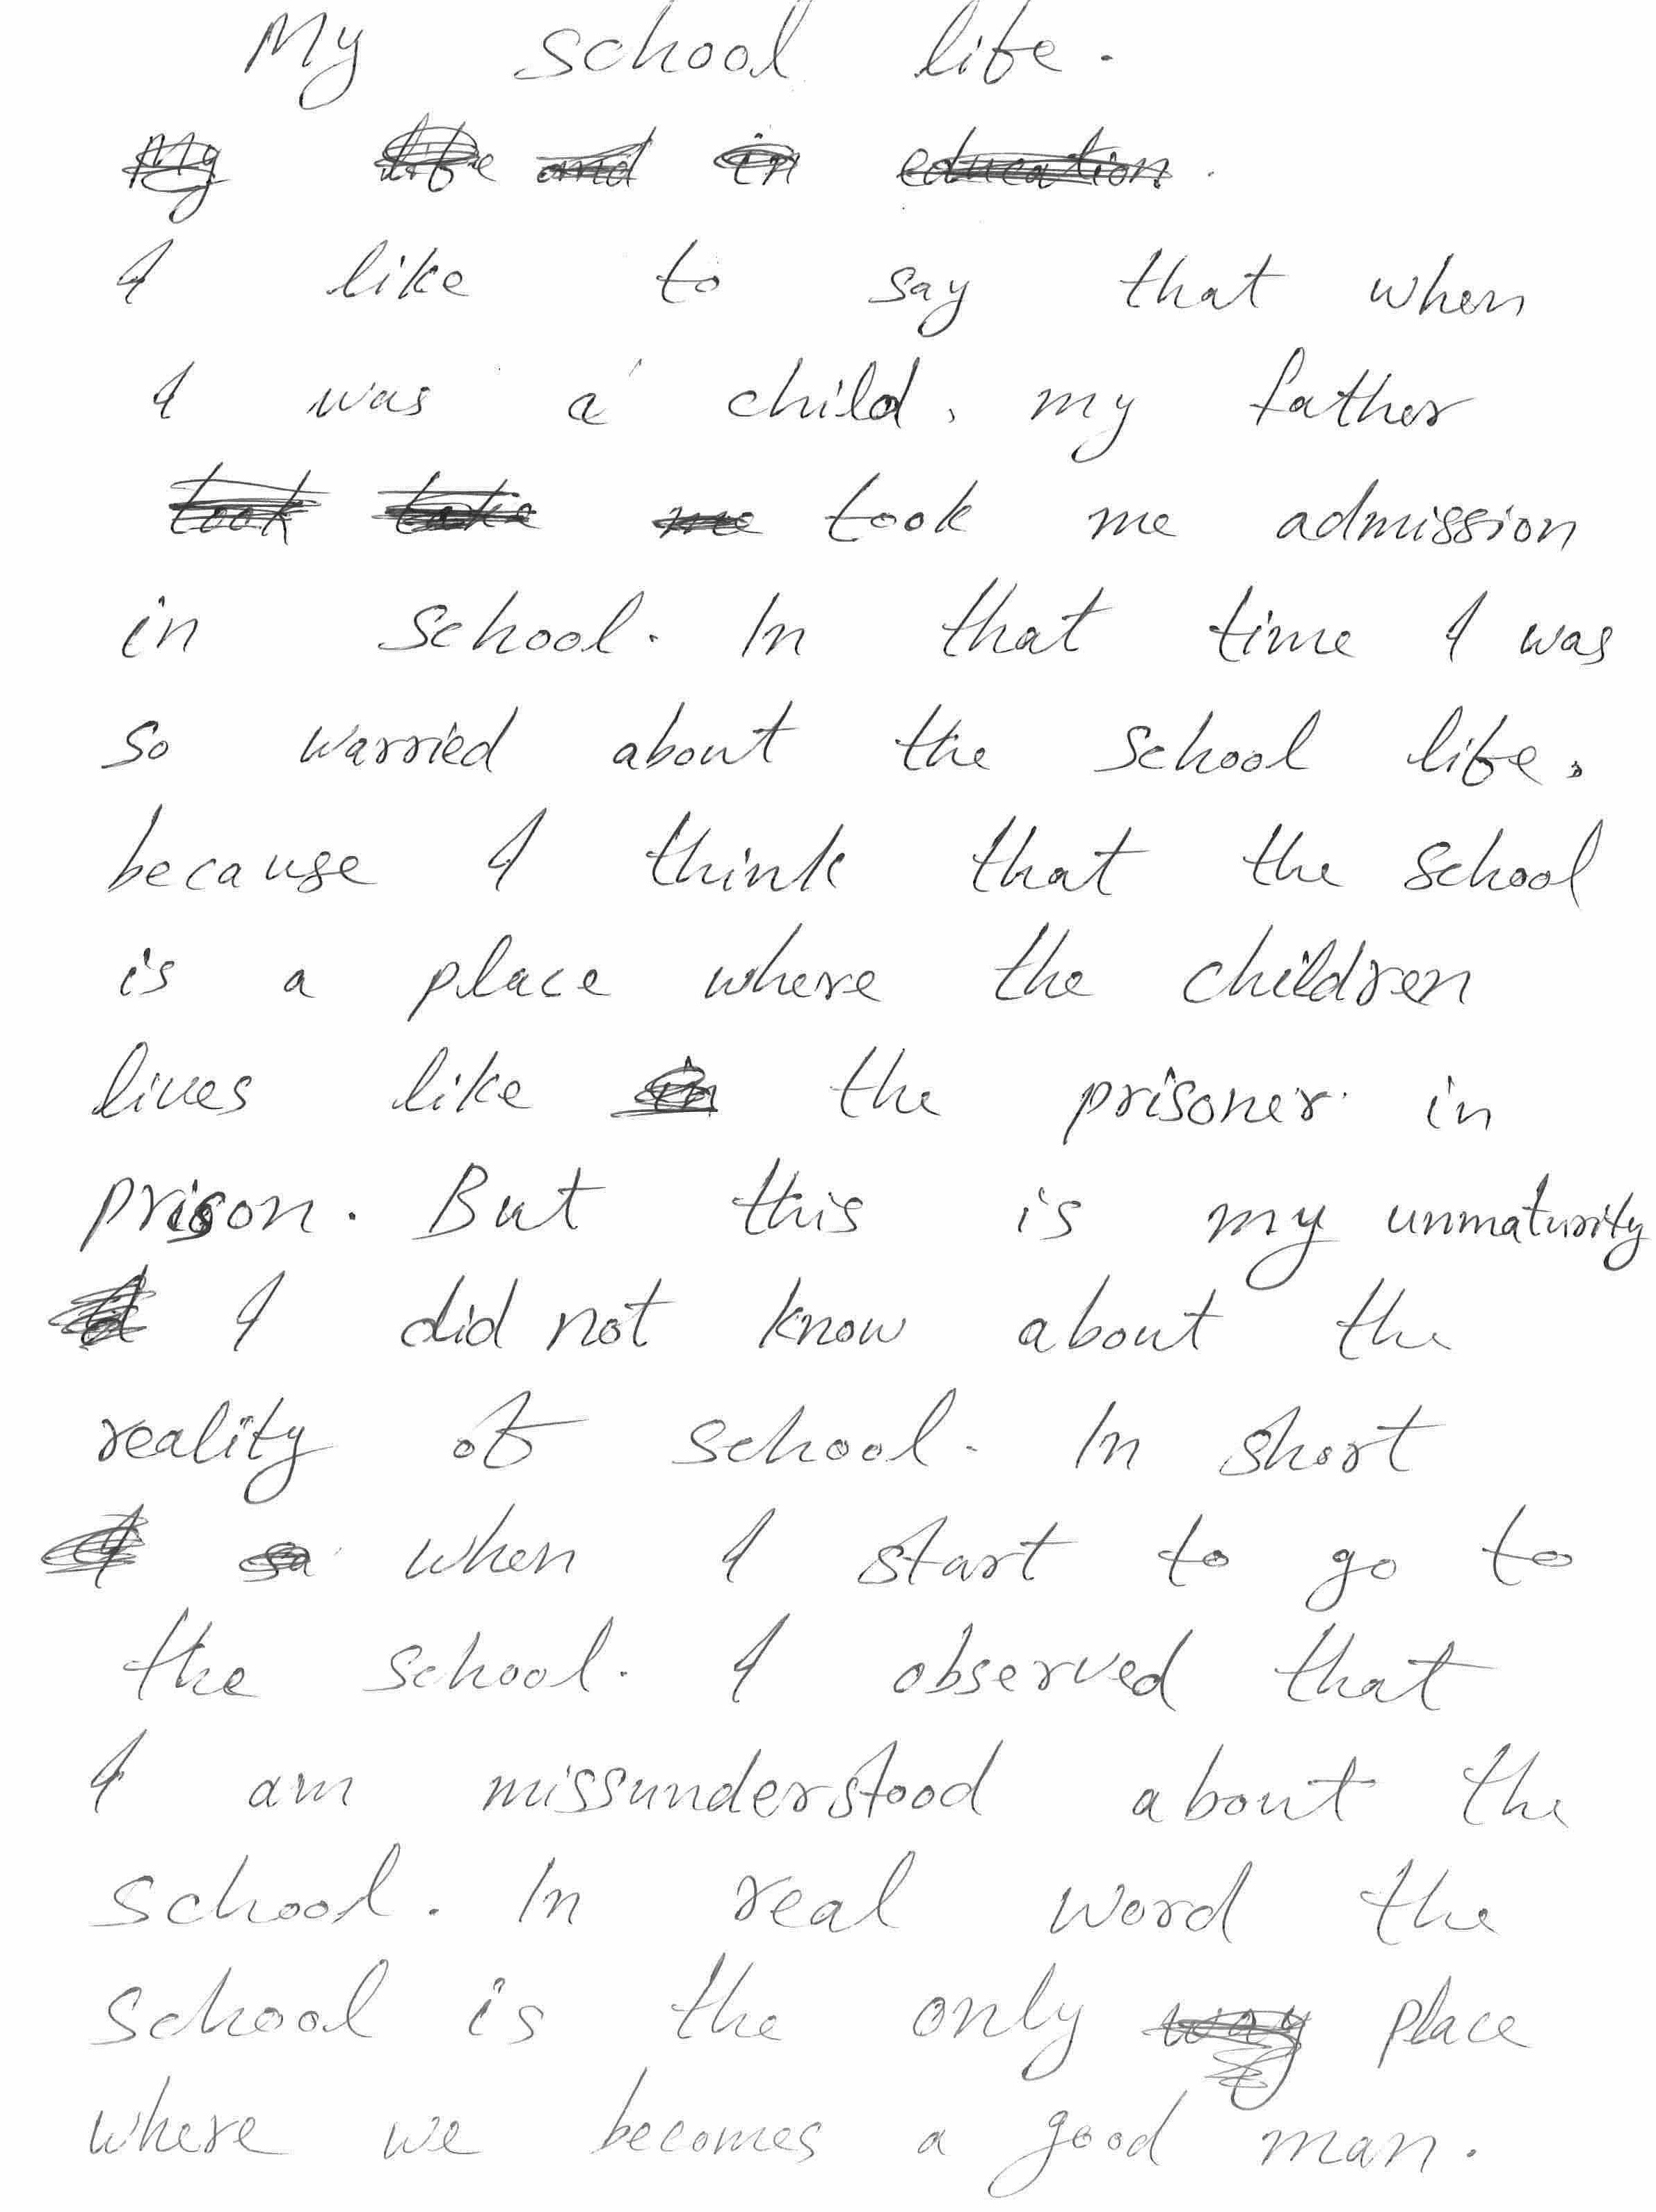 My school life.
My life and in education.
I like to say that when
I was a child, my father
took take me took me admission
in school. In that time I was
so warried about the school life,
because I think that the school
is a place where the children
lives like in the prisoner in
prison. But this is my unmaturity
I did not know about the
reality of school. In short
I so when I start to go to
the school. I observed that
I am missunderstood about the
school. In real word the
school is the only way place
where we becomes a good man.